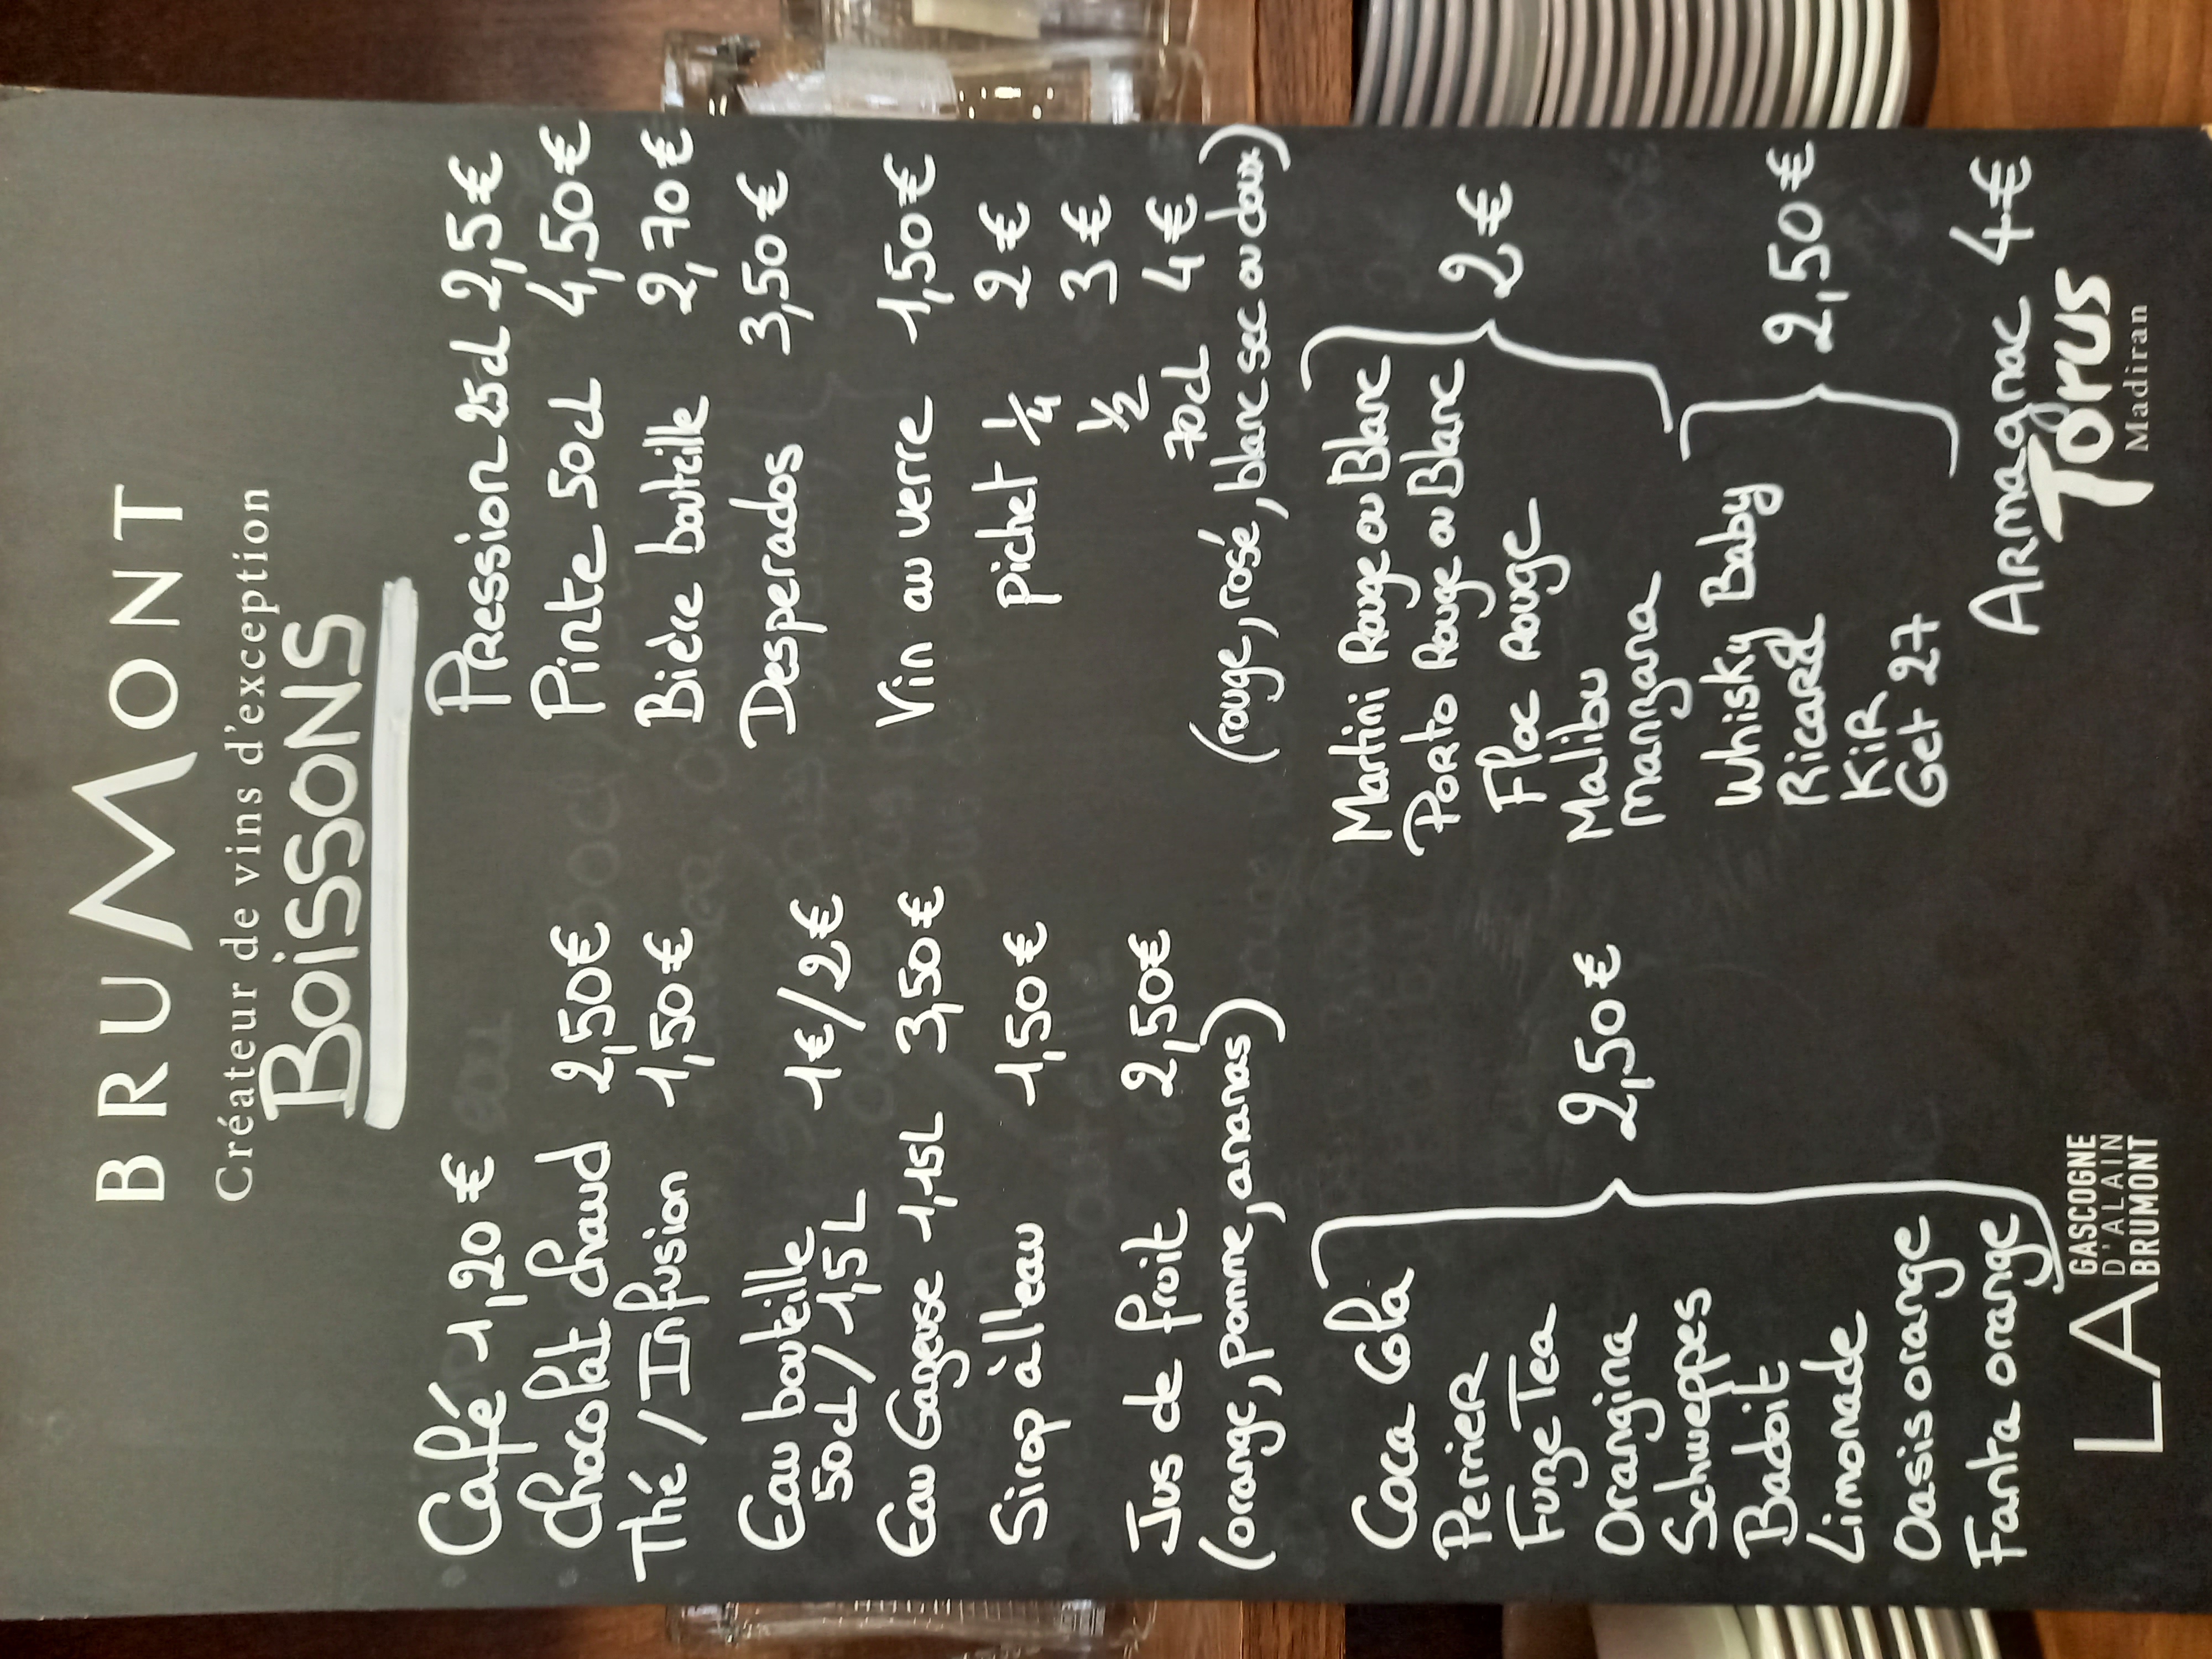 BRUMONT
Créateur de vins d'exception
BOISSONS
Café 1,20€
Chocolat chaud 2,50€
Thé / Infusion 1,50€
Eau bouteille
50cl / 1,5L 1€/2€
Eau Gazeuse 1,15L 3,50€
Sirop à l'eau 1,50€
Jus de fruit 2,50€
(orange, pomme, ananas)
Coca Cola
Perrier
Fuze Tea
Orangina
Schweppes
Badoit
Limonade
Oasis orange
Fanta orange
2,50€
Pression 25cl 2,5€
Pinte 50cl 4,50€
Bière bouteille 2,70€
Desperados 3,50€
Vin au verre 1,50€
pichet 1/4 2€
1/2 3€
70cl 4€
(rouge, rosé, blanc sec ou doux)
Martini Rouge ou Blanc
Porto Rouge ou Blanc
Floc rouge
Malibu
Manzana
2€
Whisky Baby
Ricard
Kir
Get 27
2,50€
Armagnac 4€
LA GASCOGNE
D'ALAIN
BRUMONT
Torus
Madiran